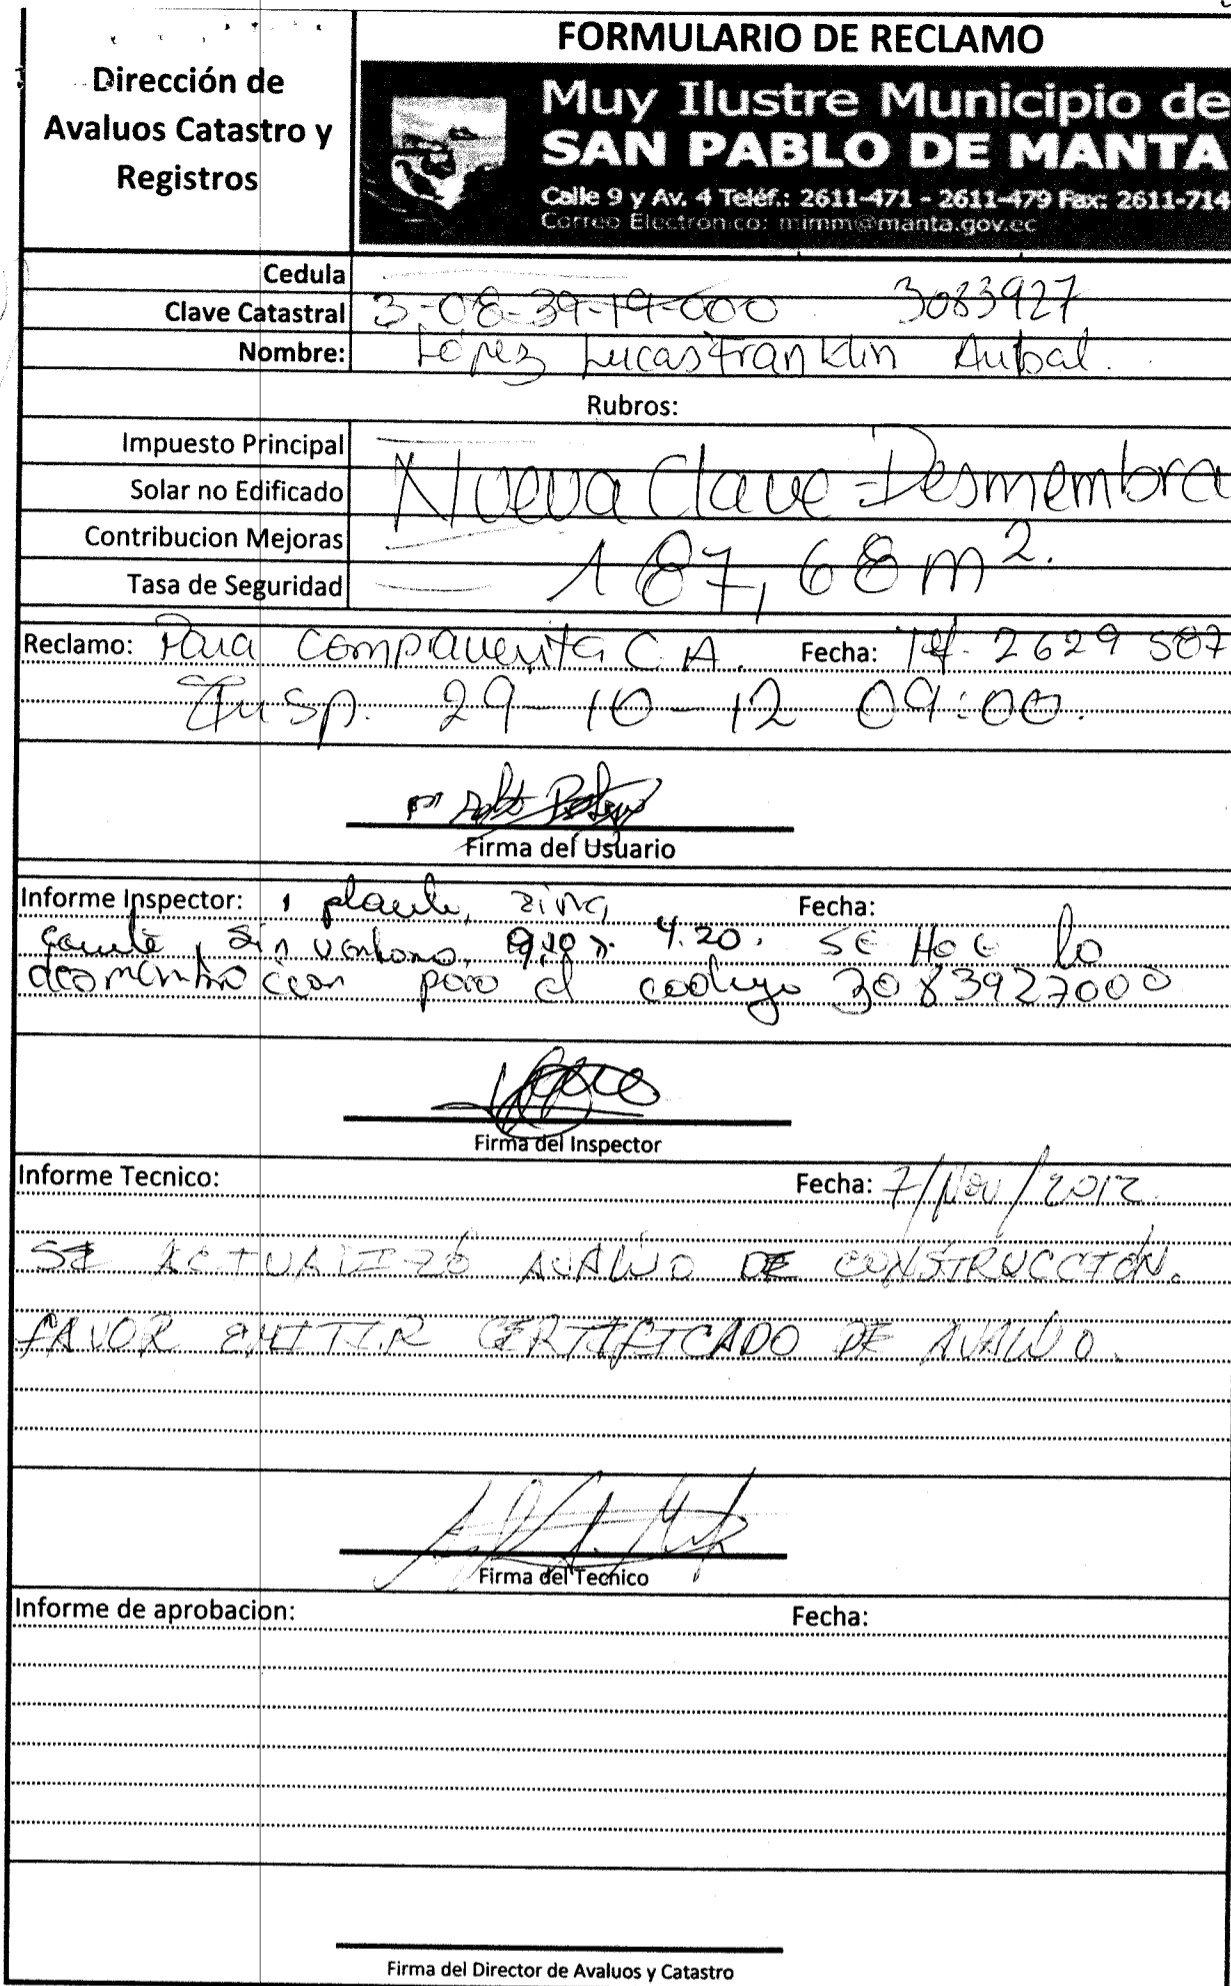 FORMULARIO DE RECLAMO
Dirección de
Avaluos Catastro y
Registros
Muy Ilustre Municipio de
SAN PABLO DE MANTA
Calle 9 y Av. 4 Teléf.: 2611-471 - 2611-479 Fax: 2611-714
Correo Electrónico: mimm@manta.gov.ec
Cedula
Clave Catastral 3-08-39-19-000 3083927
Nombre: López Lucas Franklin Anibal.
Rubros:
Impuesto Principal
Solar no Edificado Nueva Clave - Desmembra
Contribucion Mejoras
Tasa de Seguridad 187,68 m2.
Reclamo: Para compraventa C.A. Fecha: Telf. 2629 587
Insp. 29-10-12 09:00.
Firma del Usuario
Informe Inspector: 1 planta, zinc, Fecha:
caña, sin ventana, 4.20. SE Hace la
desmembracion para el codigo 3083927000
Firma del Inspector
Informe Tecnico: Fecha: 7/Nov/2012
SE ACTUALIZÓ AVALÚO DE CONSTRUCCIÓN.
FAVOR EMITIR CERTIFICADO DE AVALÚO.
Firma del Tecnico
Informe de aprobacion: Fecha:
Firma del Director de Avaluos y Catastro